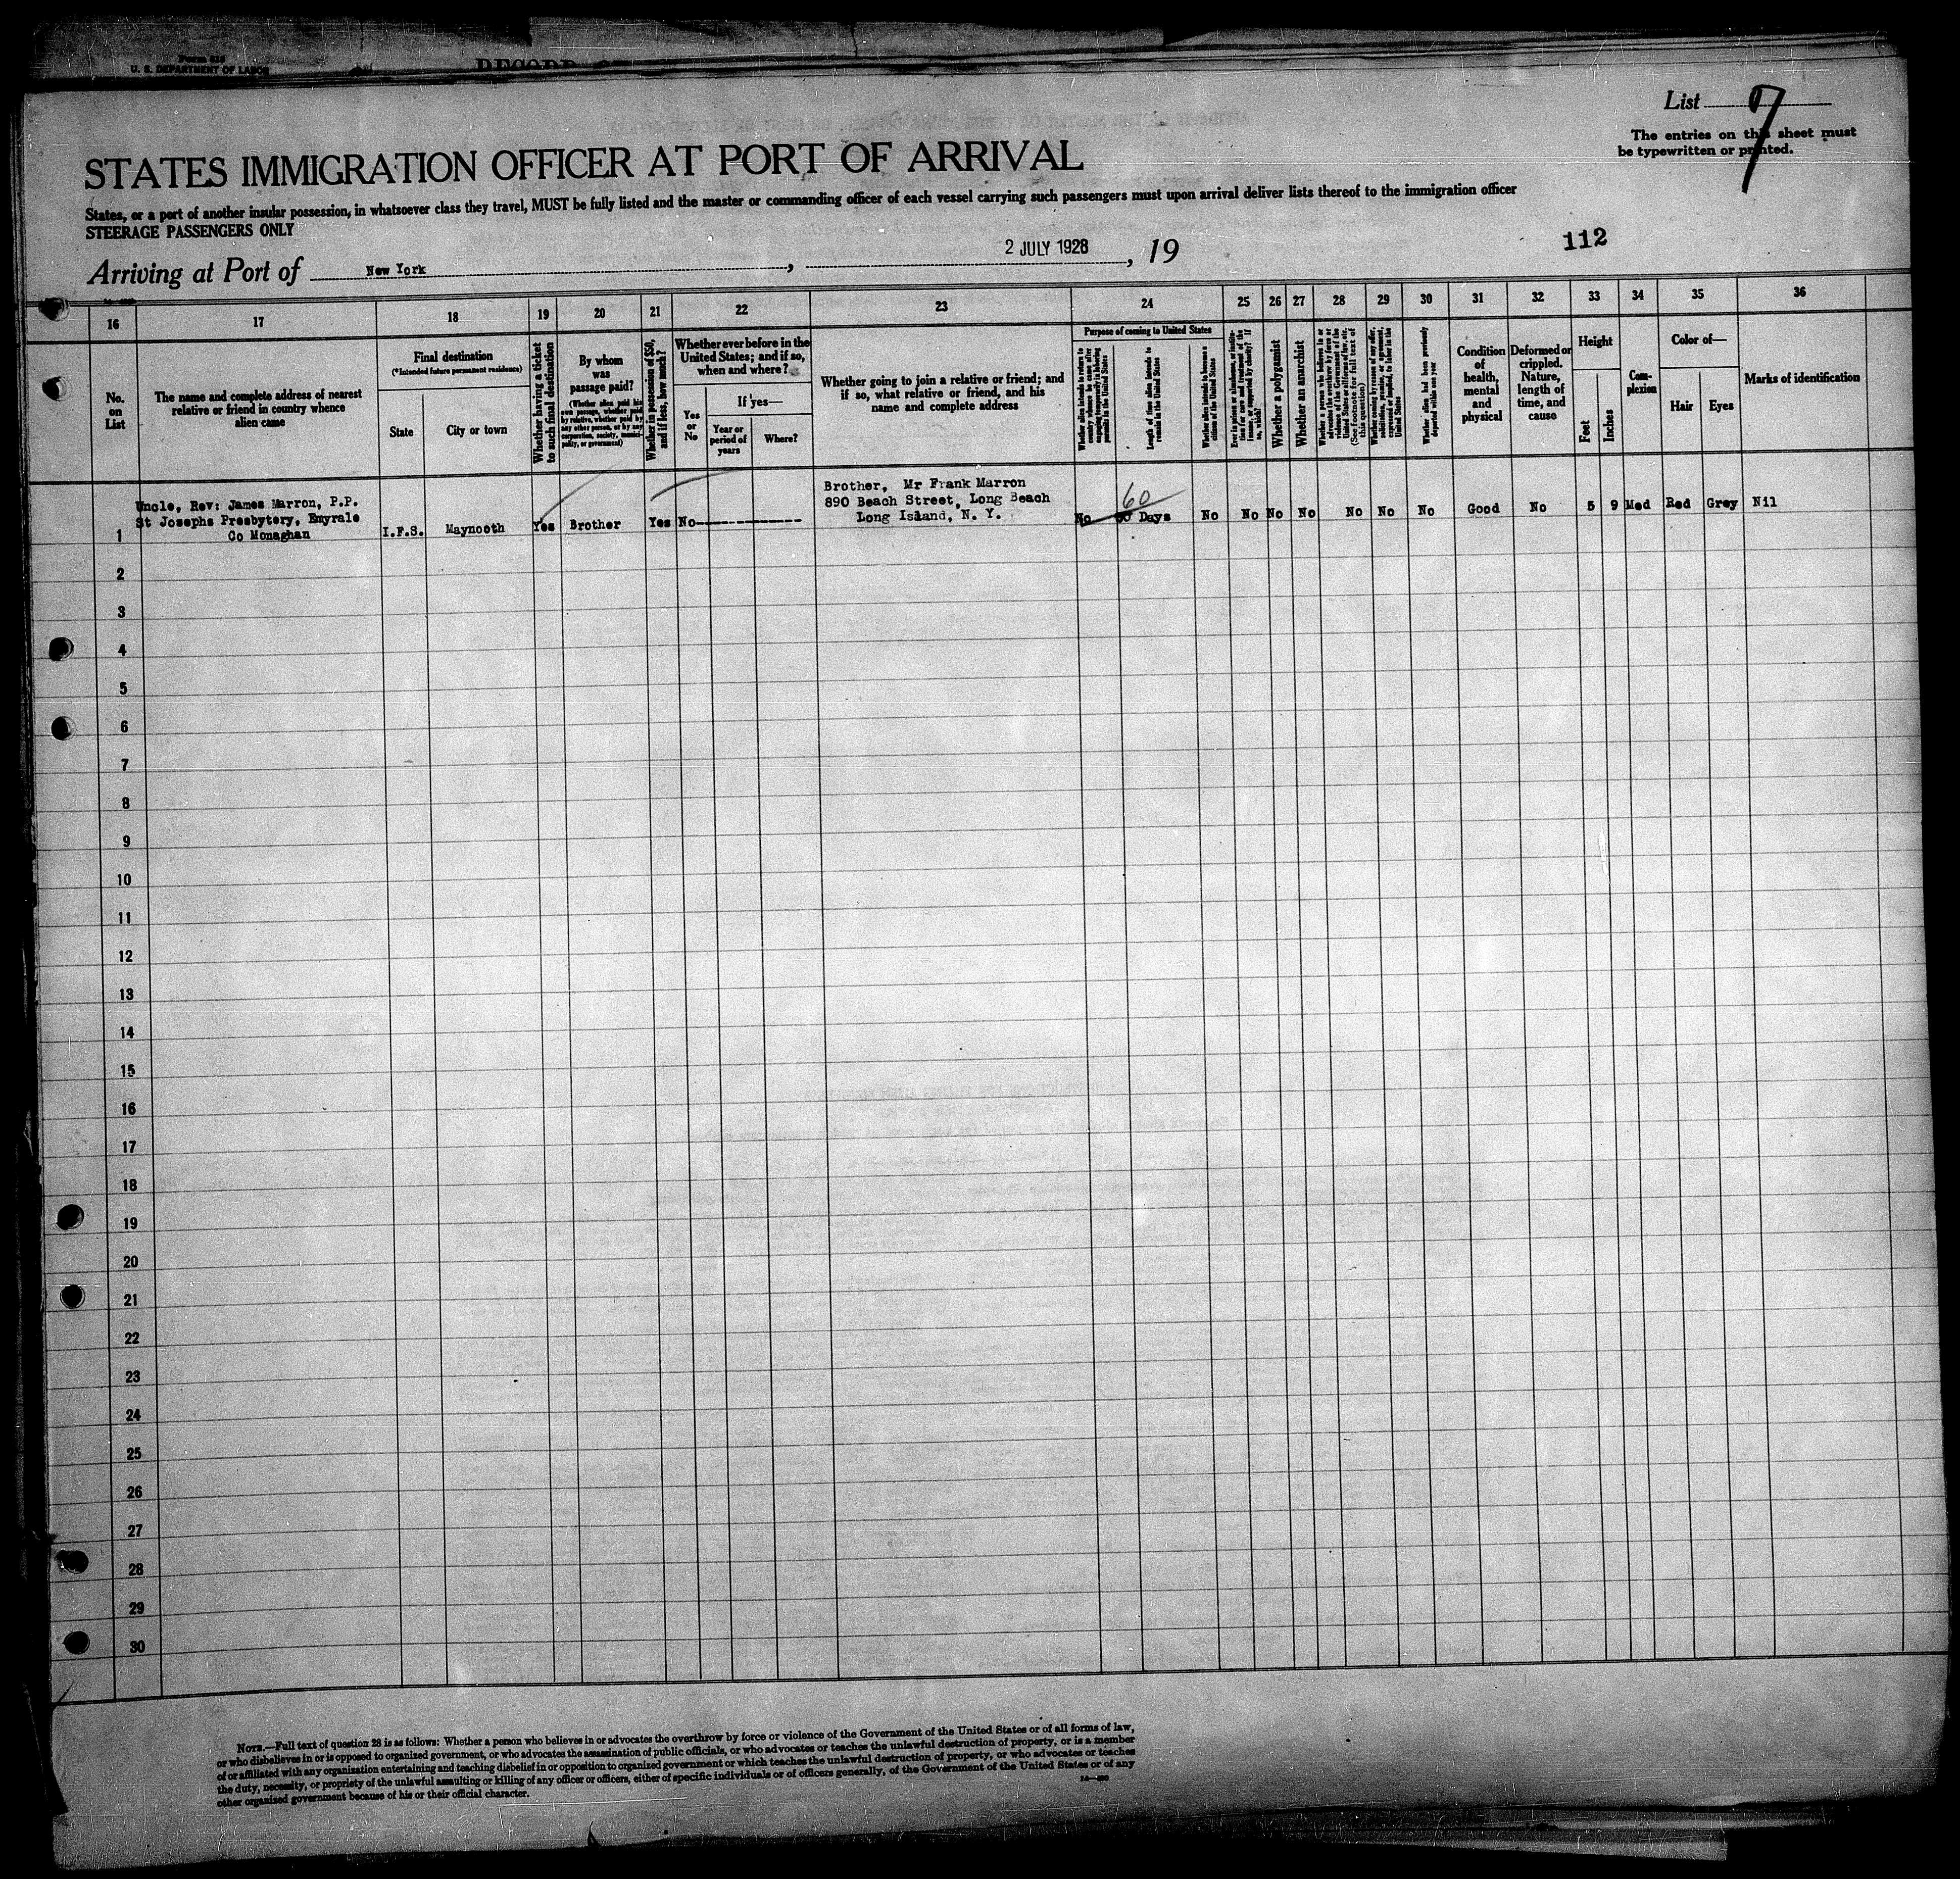 Form 815
U. S. DEPARTMENT OF LABOR
List 7
The entries on this sheet must
be typewritten or printed.
STATES IMMIGRATION OFFICER AT PORT OF ARRIVAL
States, or a port of another insular possession, in whatsoever class they travel, MUST be fully listed and the master or commanding officer of each vessel carrying such passengers must upon arrival deliver lists thereof to the immigration officer
STEERAGE PASSENGERS ONLY
112
Arriving at Port of New York, 2 JULY 1928, 19
16 17 18 19 20 21 22 23 24 25 26 27 28 29 30 31 32 33 34 35 36
No.
on
List
The name and complete address of nearest
relative or friend in country whence
alien came
Final destination
(*Intended future permanent residence)
State
City or town
Whether having a ticket
to such final destination
By whom
was
passage paid?
(Whether alien paid his
own passage, whether paid
by relative, whether paid by
any other person, or by any
corporation, society, munici-
pality, or government)
Whether in possession of $50,
and if less, how much?
Whether ever before in the
United States; and if so,
when and where?
Yes
or
No
If yes—
Year or
period of
years
Where?
Whether going to join a relative or friend; and
if so, what relative or friend, and his
name and complete address
Purpose of coming to United States
Whether alien intends to return to
country whence he came after
engaging temporarily in laboring
pursuits in the United States
Length of time alien intends to
remain in the United States
Whether alien intends to become a
citizen of the United States
Ever in prison or almshouse, or institu-
tion for care and treatment of the
insane, or supported by charity? If
so, which?
Whether a polygamist
Whether an anarchist
Whether a person who believes in or
advocates the overthrow by force or
violence of the Government of the
United States or all forms of law, etc.
(See footnote for full text of
this question)
Whether coming by reason of any offer,
solicitation, promise, or agreement,
expressed or implied, to labor in the
United States
Whether alien had been previously
deported within one year
Condition
of
health,
mental
and
physical
Deformed or
crippled.
Nature,
length of
time, and
cause
Height
Feet
Inches
Com-
plexion
Color of—
Hair
Eyes
Marks of identification
Uncle, Rev: James Marron, P.P.
St Josephs Presbytery, Emyrale
Co Monaghan
1 I.F.S. Maynooth Yes Brother Yes No
Brother, Mr Frank Marron
890 Beach Street, Long Beach
Long Island, N. Y.
60
No Days No No No No No No No Good No 5 9 Med Red Grey Nil
2
3
4
5
6
7
8
9
10
11
12
13
14
15
16
17
18
19
20
21
22
23
24
25
26
27
28
29
30
NOTE.—Full text of question 28 is as follows: Whether a person who believes in or advocates the overthrow by force or violence of the Government of the United States or of all forms of law,
or who disbelieves in or is opposed to organized government, or who advocates the assassination of public officials, or who advocates or teaches the unlawful destruction of property, or is a member
of or affiliated with any organization entertaining and teaching disbelief in or opposition to organized government or which teaches the unlawful destruction of property, or who advocates or teaches
the duty, necessity, or propriety of the unlawful assaulting or killing of any officer or officers, either of specific individuals or of officers generally, of the Government of the United States or of any
other organized government because of his or their official character.